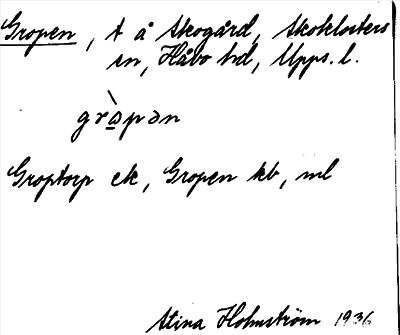 Gropen, t å Skogård, Skoklosters
sn, Håbo hd, Upps. l.
grɔ̀pən
Groptorp ek, Gropen kb, ml
Stina Holmström 1936